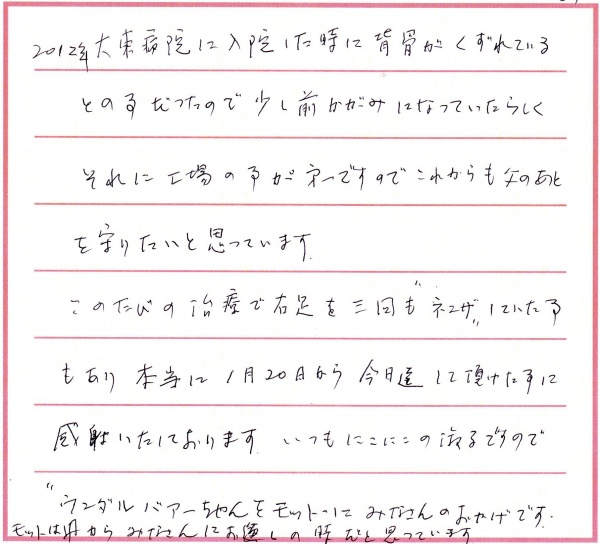 2012年大東病院に入院した時に背骨がくずれている
との事だったので少し前かがみになっていたらしく
それに工場の事が第一ですのでこれからも父のあと
を守りたいと思っています.
このたびの治療で右足を三回も〝ネンザ〟していた事
もあり 本当に1月20日から今日迄して頂けた事に
感謝いたしております. いつもにこにこの
ですので
〝ランダルバアーちゃんをモットーに みなさんのおかげです.
モットーは
から みなさんにお
しの時だと思っています